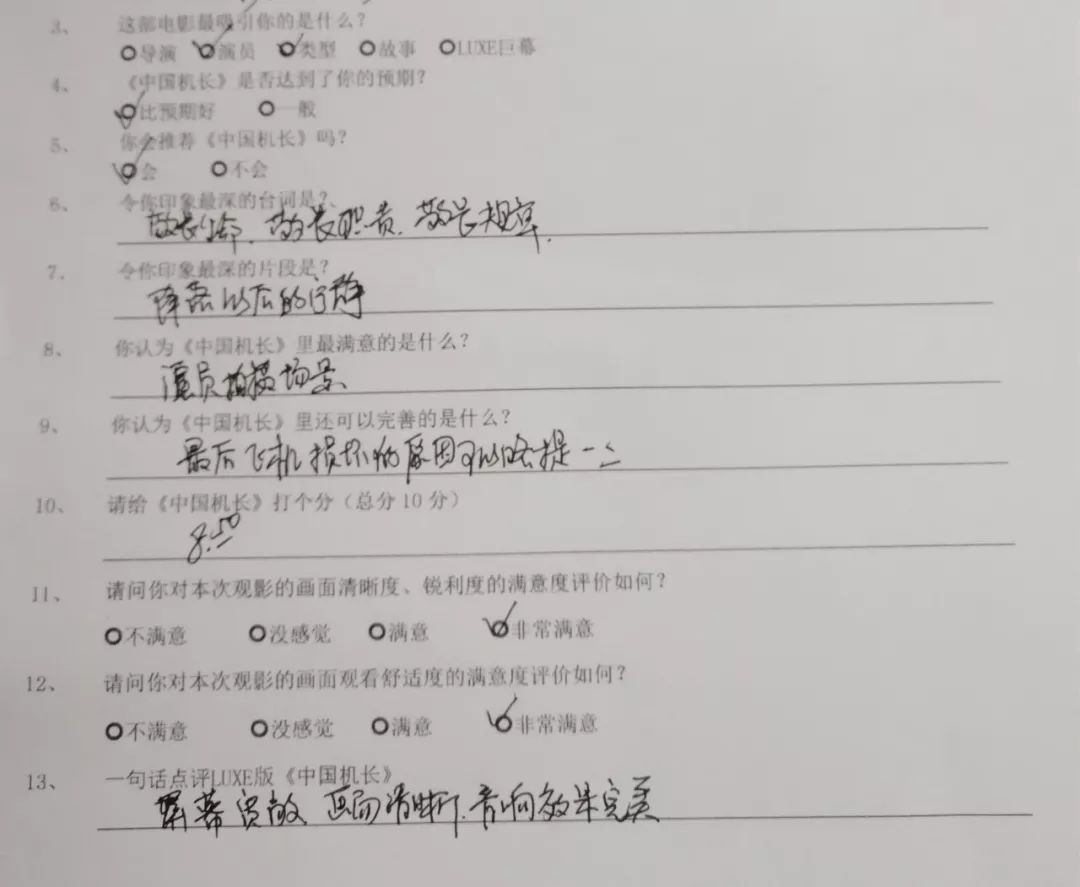 3、 这部电影最吸引你的是什么？
导演 演员 类型 故事 LUXE巨幕
4、 《中国机长》是否达到了你的预期？
比预期好 一般
5、 你会推荐《中国机长》吗？
会 不会
6、 令你印象最深的台词是？
敬畏生命、敬畏职责、敬畏规章.
7、 令你印象最深的片段是？
降落以后的安静
8、 你认为《中国机长》里最满意的是什么？
演员拍摄场景
9、 你认为《中国机长》里还可以完善的是什么？
最后飞机损坏的原因可以略提一二
10、 请给《中国机长》打个分（总分10分）
8.50
11、 请问你对本次观影的画面清晰度、锐利度的满意度评价如何？
不满意 没感觉 满意 非常满意
12、 请问你对本次观影的画面观看舒适度的满意度评价如何？
不满意 没感觉 满意 非常满意
13、 一句话点评LUXE版《中国机长》
屏幕宽敞 画面清晰. 音响效果完美